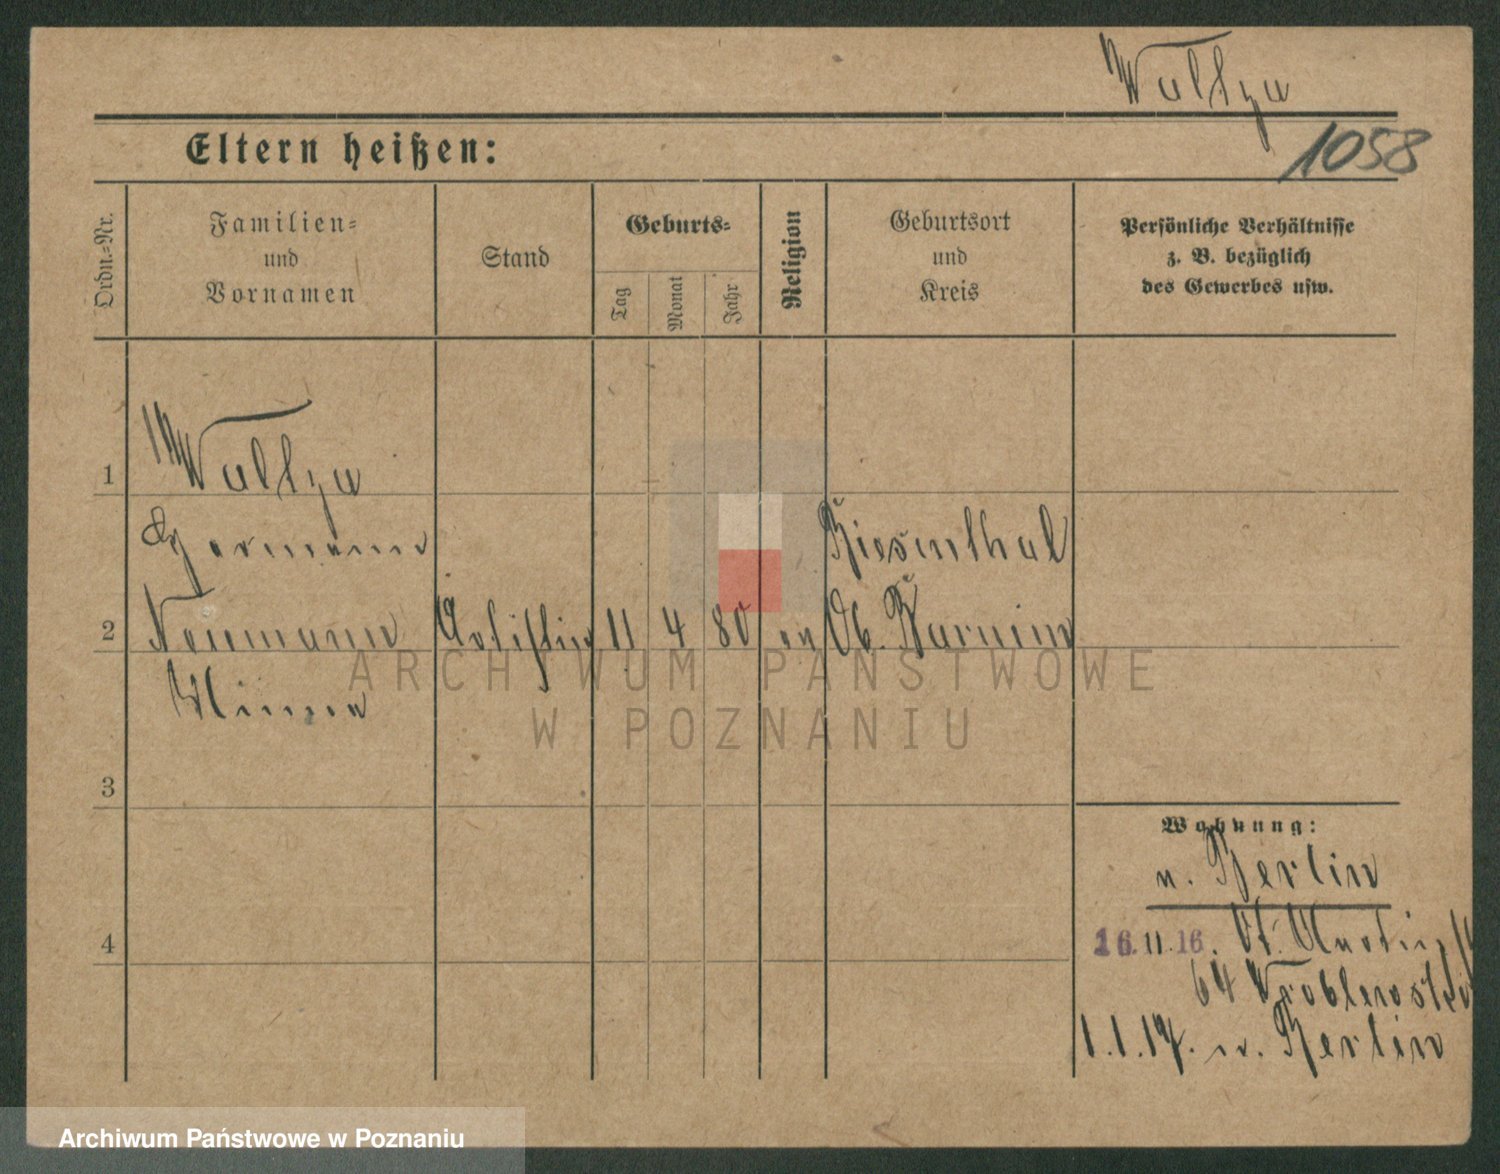 Waltzu
1058
Eltern heißen:
Ordn.=Nr.
Familien=
und
Vornamen
Stand
Geburts=
Tag
Monat
Jahr
Religion
Geburtsort
und
Kreis
Persönliche Verhältnisse
z. B. bezüglich
des Gewerbes usw.
1
Hermann
Biesenthal
2 Neumann Artistin 11 4 80 ev Ob. Barnim
Minna
ARCHIWUM PAŃSTWOWE
W POZNANIU
3
Wohnung:
n. Berlin
16.11.16. St. Martin
64 Wroblewski
4
1.1.17. n. Berlin
Archiwum Państwowe w Poznaniu